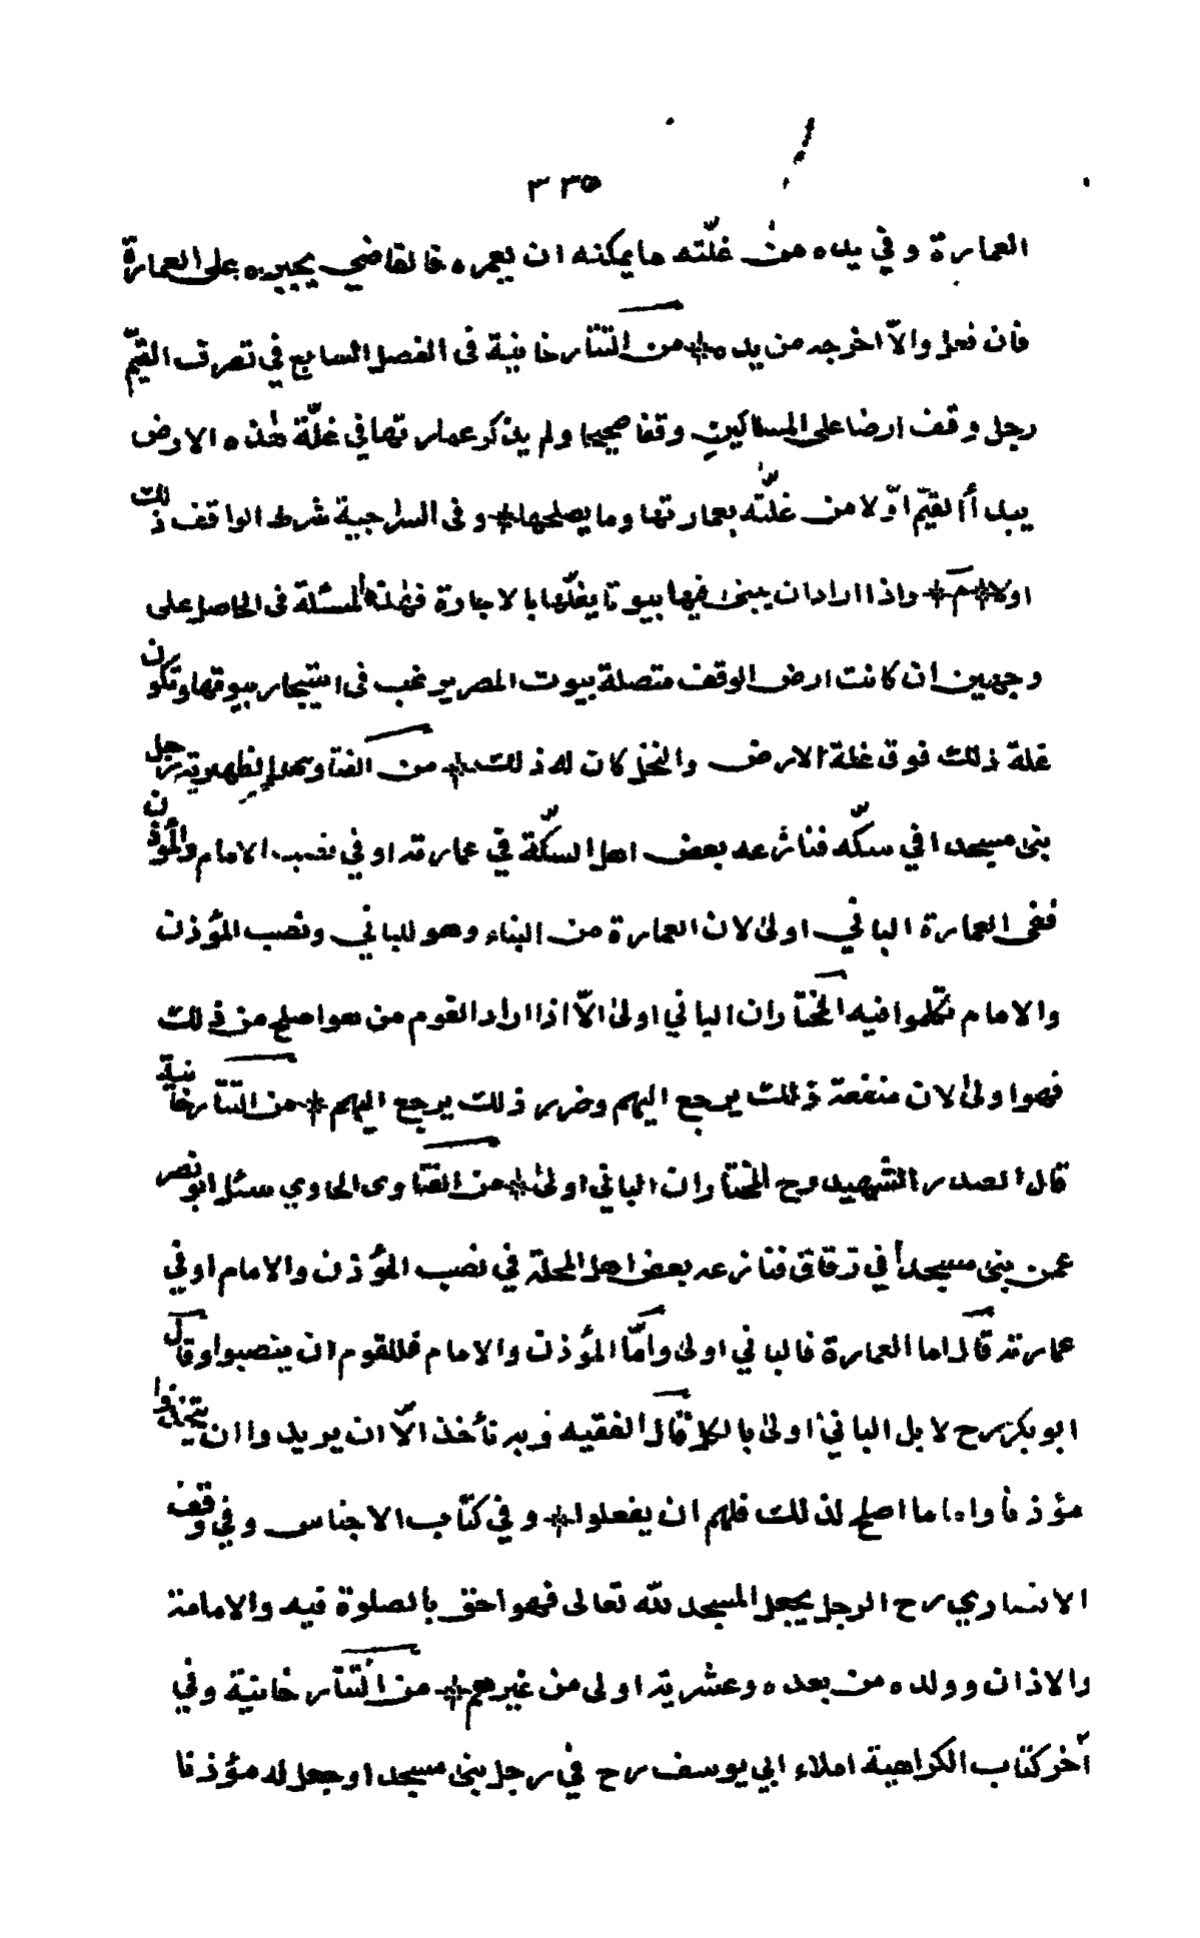 ٣٣٥
العمارة وفي يده من غلّته ما يمكنه ان يعمره فالقاضي يجبره على العمارة
فان فعل والاّ اخرجه من يده * من التتارخانية فى الفصل السابع في تصرف القيّم
رجل وقف ارضا على المساكين وقفا صحيحا ولم يذكر عمارتها في غلّة هذه الارض
يبدأ القيّم اوّلا من غلّته بعمارتها وما يصلحها * وفى السراجية شرط الواقف ذلك
اولا * م * واذا اراد ان يبنى فيها بيوتا يغلّها بالاجارة فهذه المسئلة فى الحاصل على
وجهين ان كانت ارض الوقف متصلة بيوت المصر يرغب فى استيجار بيوتها وتكون
غلة ذلك فوق غلة الارض والنخل كان له ذلك * من الفتاوى الظهيرية رجل
بنى مسجدا في سكّه فنازعه بعض اهل السكّة في عمارته او في نصب الامام والمؤذن
ففى العمارة الباني اولى لان العمارة من البناء وهو للباني ونصب المؤذن
والامام تكلموا فيه المختار ان الباني اولى الاّ اذا اراد القوم من هو اصلح من ذلك
فهو اولى لان منفعة ذلك يرجع اليهم وضرر ذلك يرجع اليهم * من التتارخانية
قال الصدر الشهيد رح المختار ان الباني اولى * من الفتاوى الحاوي سئل ابو نصر
عمن بنى مسجدأ في زقاق فنازعه بعض اهل المحلة في نصب المؤذن والامام او في
عمارته قال اما العمارة فالباني اولى وامّا المؤذن والامام فللقوم ان ينصبوا وقال
ابو بكر رح لا بل الباني اولى بالكل قال الفقيه وبه نأخذ الاّ ان يريدوا ان يتخذوا
مؤذنا واماما اصلح لذلك فلهم ان يفعلوا * وفي كتاب الاجناس وفي وقف
الانصاري رح الرجل يجعل المسجد لله تعالى فهو احق بالصلوة فيه والامامة
والاذان وولده من بعده وعشريته اولى من غيرهم * من التتارخانية وفي
آخر كتاب الكراهية املاء ابي يوسف رح في رجل بنى مسجدا وجعل له مؤذنا